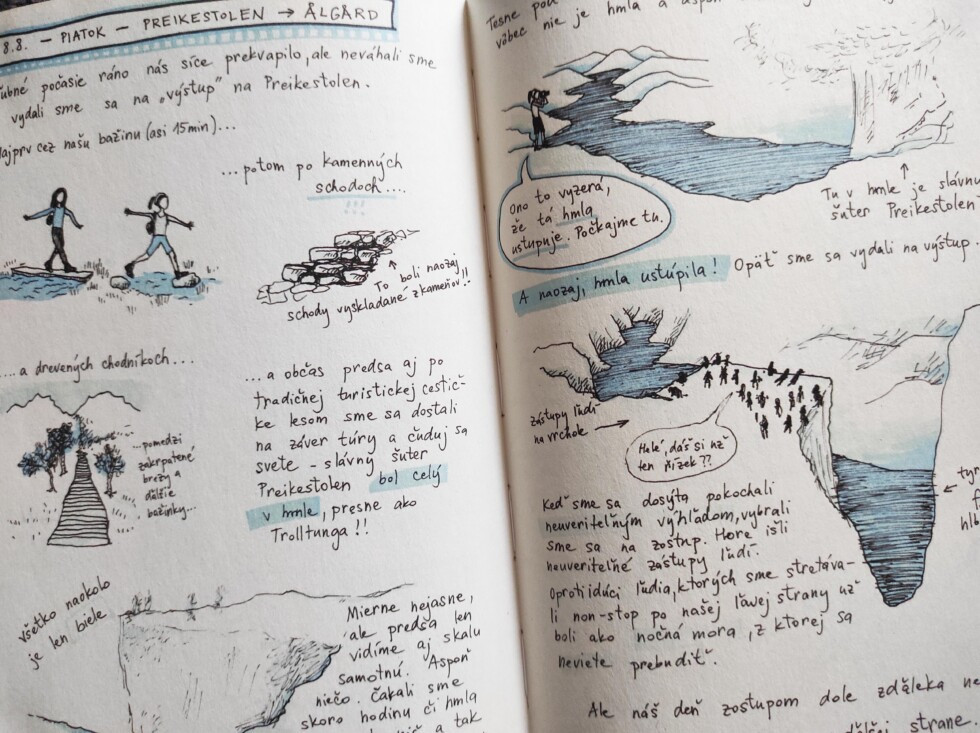 8.8. – PIATOK – PREIKESTOLEN → ÅLGÅRD
počasie ráno nás síce prekvapilo, ale neváhali sme
vydali sme sa na „výstup" na Preikestolen.
cez našu bažinu (asi 15min)...
...potom po kamenných
schodoch....
!!!
To boli naozaj
schody vyskladané z kameňov!!
...a drevených chodníkoch...
...pomedzi
zakrpatené
brezy a
ďalšie
bažinky...
...a občas predsa aj po
tradičnej turistickej cestič-
ke lesom sme sa dostali
na záver túry a čuduj sa
svete – slávny šuter
Preikestolen bol celý
v hmle, presne ako
Trolltunga!!
všetko naokolo
je len biele
Mierne nejasne,
ale predsa len
vidíme aj skalu
samotnú. Aspoň
niečo. Čakali sme
skoro hodinu či hmla
a tak
Tesne
vôbec nie je hmla a aspoň
Ono to vyzerá,
že tá hmla
ustupuje. Počkajme tu.
Tu v hmle je slávny
šuter Preikestolen
A naozaj, hmla ustúpila! Opäť sme sa vydali na výstup
zástupy ľudí
na vrchole
Halé, dáš si už
ten řízek??
Keď sme sa dosýta pokochali
neuveriteľným výhľadom, vybrali
sme sa na zostup. Hore išli
neuveriteľné zástupy ľudí.
Oprotiidúci ľudia, ktorých sme stretáva-
li non-stop po našej ľavej strany už
boli ako nočná mora, z ktorej sa
neviete prebudiť.
Ale náš deň zostupom dole zďaleka
strane.